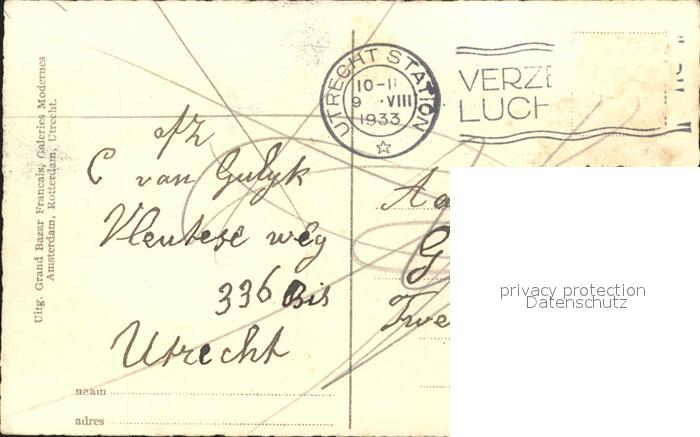 Uitg. Grand Bazar Francais, Galeries Modernes
Amsterdam, Rotterdam, Utrecht.
afz
C van Gulyk
Vleutese weg
336 Bis
Utrecht
naam
adres
UTRECHT STATION
10-11
9 ·VIII
1933
VERZE
LUCH
Aa
G
Twe
privacy protection
Datenschutz